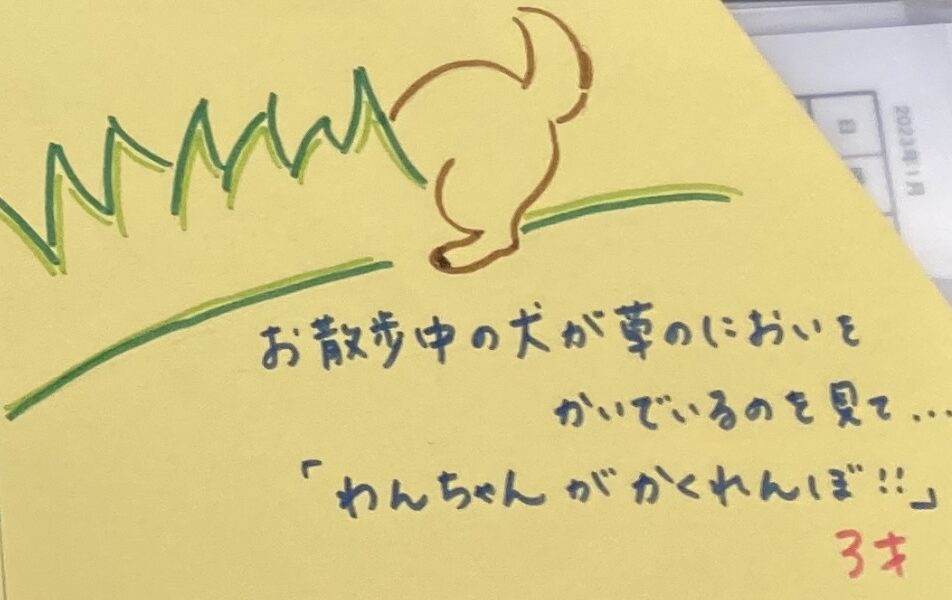 2023年1月
日
お散歩中の犬が草のにおいを
かいでいるのを見て...
「わんちゃんがかくれんぼ!!」
3才